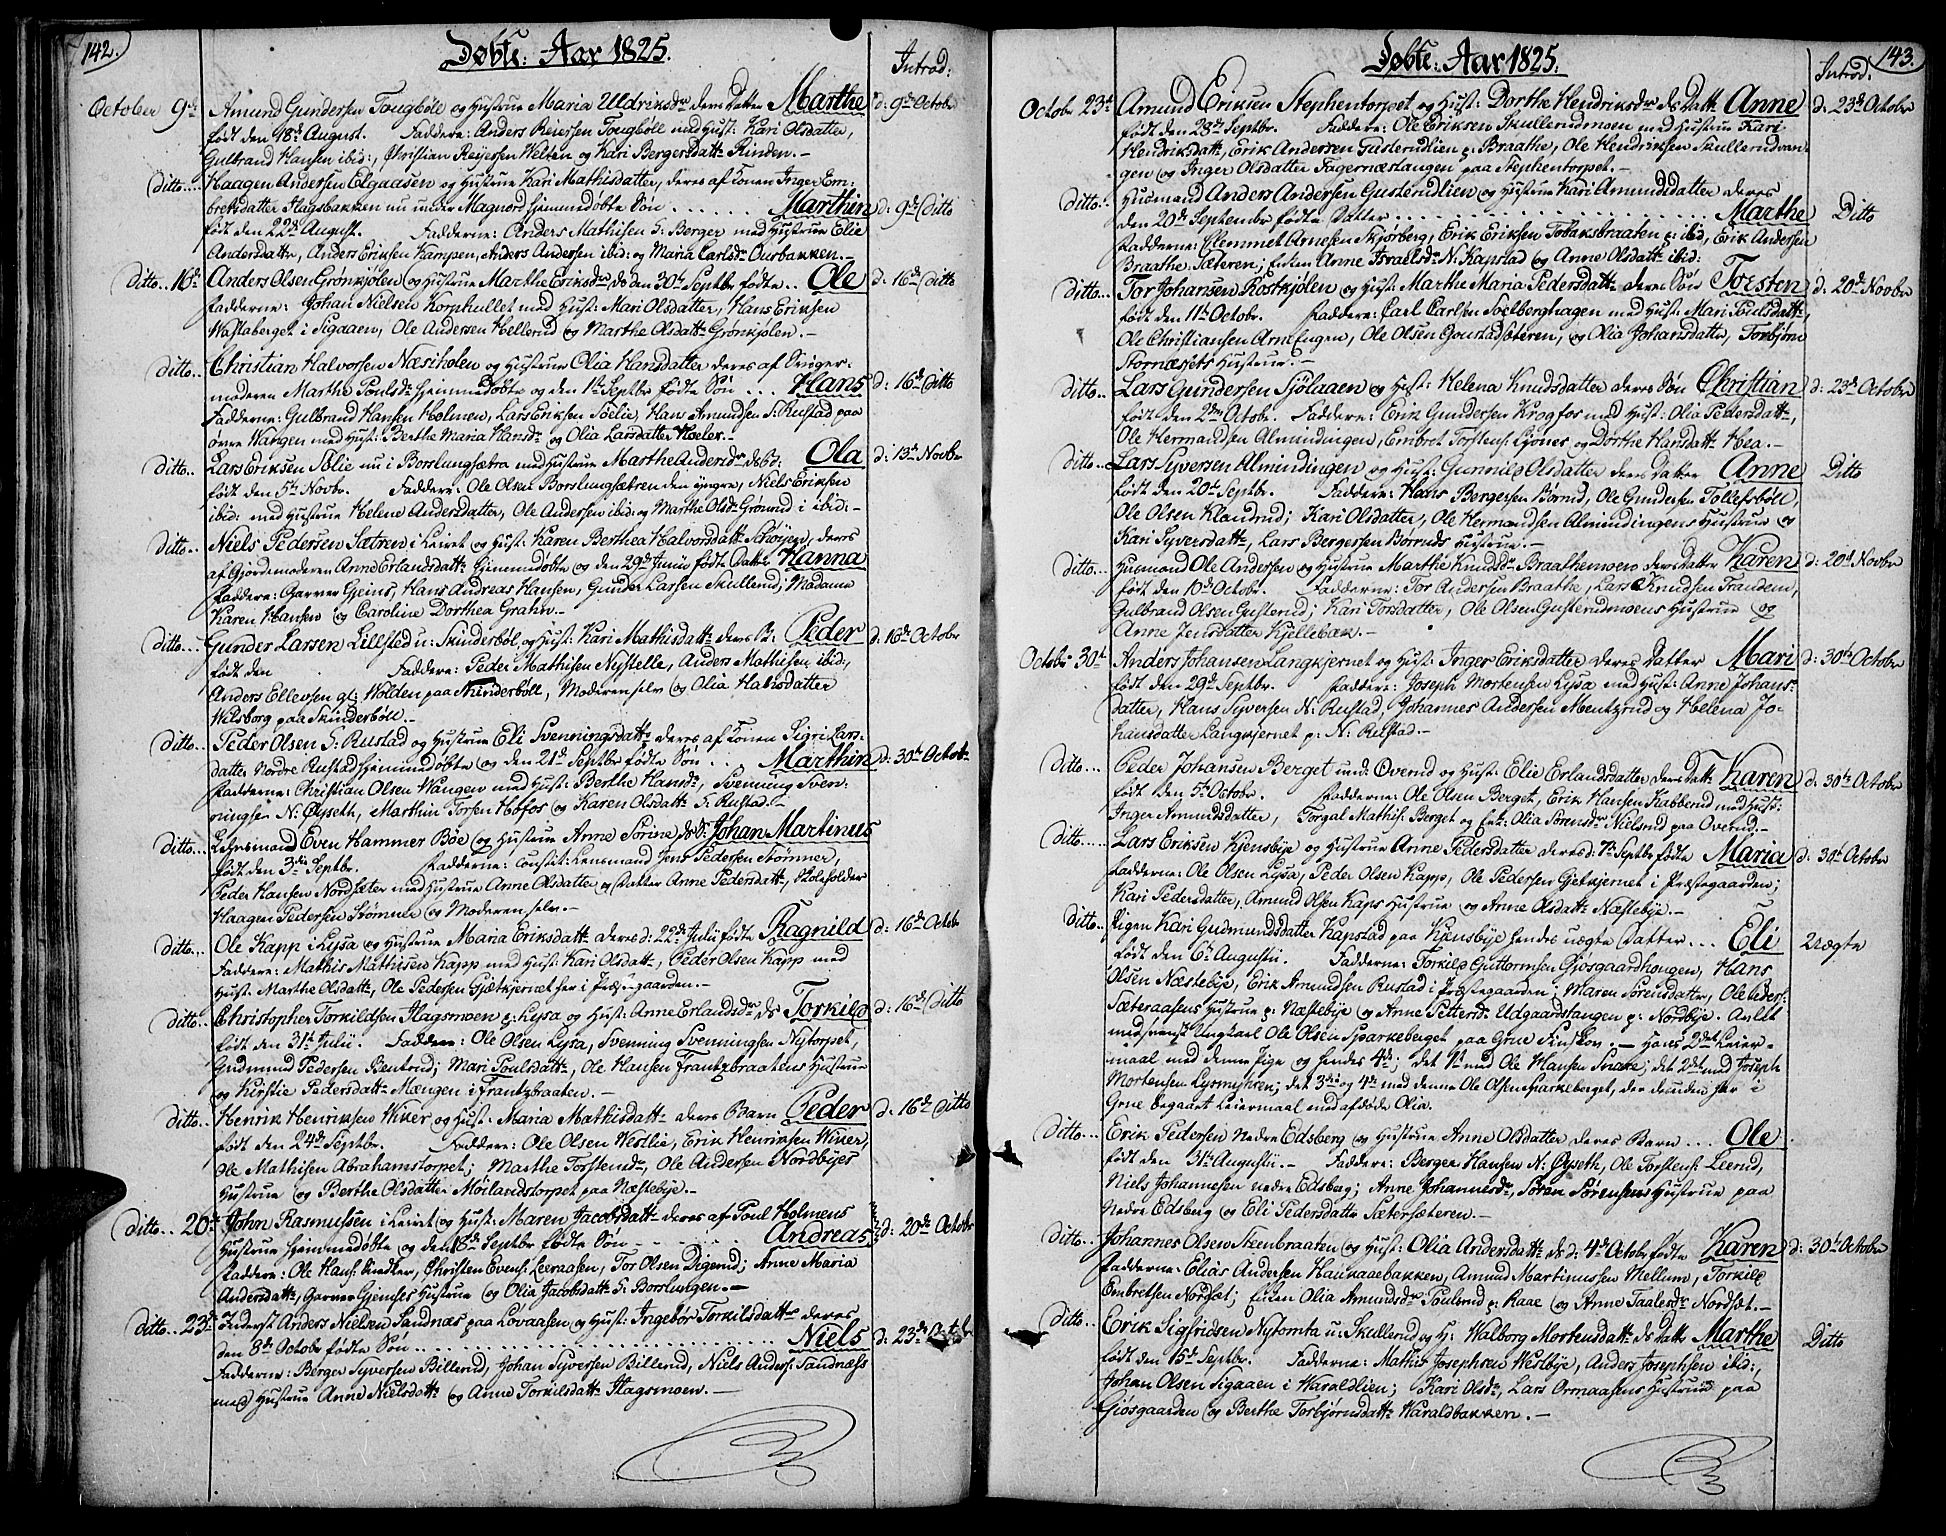 142.
Döbte: Aar 1825.
Introd:
October 9de Amund Gundersen Tougböle og Hustrue Maria Uldriksdr deres Datter Marthe d: 9de Octobr
født den 18de August. Faddere: Anders Reiersen Tougböll med Hust: Kari Olsdatter,
Gulbrand Hansen ibid:, Christian Reyersen Welten og Kari Bergersdattr Rinden.-
Ditto... Haagen Andersen Elgaasen og Hustrue Kari Mathisdatter, deres af Konen Inger Em-
bretsdatter Hagsbakken nu under Magnord hjemmedøbte Søn ....... Marthin d: 9de Ditto
født den 22de August. Faddere: Anders Mathisen S. Berger med Hustrue Elie
Andersdatter, Anders Eriksen Kampen, Anders Andersen ibid: og Maria Carlsdr Ourbakken.-
Ditto 16de Anders Olsen Grönkjølen og Hustrue Marthe Eriksdr ds den 30te Septbr fødte .. Ole d: 16de Ditto
Fadderne: Johan Nielsen Korphullet med Hust: Mari Olsdatter, Hans Eriksen
Wastaberget i Sigaaen, Ole Andersen Hellerud og Marthe Olsdattr Grönkjølen.-
Ditto.. Christian Halvorsen Næsiholen og Hustrue Olia Hansdatter deres af Sviger-
moderen Marthe Poulsdr hjemmedøbte og den 1te Septbr fødte Søn ... Hans d: 16de Ditto
Fadderne: Gulbrand Hansen Holmen, Lars Eriksen Søelie, Hans Amundsen S. Rustad paa
øvre Wangen med Hust: Berthe Maria Hansdr og Olia Larsdatter Noeler.-
Ditto.. Lars Eriksen Sølie nu i Borslungsætra med Hustrue Marthe Andersdr ds Ola d: 13de Novbr
født den 5te Novbr. Faddere: Ole Olsen Borslungsætren den yngre, Niels Eriksen
ibid: med Hustrue Helene Andersdatter, Ole Andersen ibid: og Marthe Olsdr Grønud i ibid:-
Ditto.. Niels Pedersen Sætren i Leiret og Hust: Karen Berthea Halvorsdattr Schöyen, deres
af Gjordemoderen Anne Erlandsdattr hjemmedøbte og den 29de Junii fødte Datter Hanna
Faddere: Garver Gjems, Hans Andreas Hansen, Gunder Larsen Skullerud, Madame
Karen Hansen og Caroline Dorthea Grahn.-
Ditto.. Gunder Larsen Lillested u: Skinderböl og Hust: Kari Mathisdattr deres B: Peder d: 16de Octobr
født den Faddere: Peder Mathisen Nystelle, Anders Mathisen ibid:,
Anders Ellevsen gl: Wolden paa Skinderböll, Moderen selv og Olia Hansdatter
Wilsborg paa Skinderböll.-
Ditto.. Peder Olsen S. Rustad og Hustrue Eli Svenningsdattr deres af Konen Sigri Lars-
datter Nordre Rustad hjemmedøbte og den 21de Septbr fødte Søn .. Marthin d: 30te Octobr
Fadderne: Christian Olsen Wangen med Hust: Berthe Hansdr, Svenning Sven-
ningsen N: Øyseth, Marthin Torsen Hofos og Karen Olsdattr S. Rustad.-
Ditto... Lehnsmand Even Hammer Böe og Hustrue Anne Sørine ds S: Johan Martinus
født den 3die Septbr. Fadderne: Constit: Lensmand Jens Pedersen Stömner,
Peder Hansen Nordsæter med Hustrue Anne Olsdatter og Datter Anne Pedersdattr, Skoleholder
Haagen Pedersen Stömner og Moderen selv.-
Ditto.. Ole Kapp i Lysa og Hustrue Maria Eriksdattr deres d: 22de Julii fødte Ragnild d: 16de Octobr
Faddere: Mathis Mathiesen Kapp med Hust: Kari Olsdattr, Peder Olsen Kapp med
Hust: Marthe Olsdattr, Ole Pedersen Gjætkjernet her i Præstegaarden.-
Ditto... Christopher Torkildsen Hagsmoen p: Lysa og Hust: Anne Erlandsdr ds Torkild d: 16de Ditto
født den 31te Julii. Faddere: Ole Olsen Lysa, Svenning Svenningsen Nytorpet,
Gudmund Pedersen Rientrud; Mari Poulsdattr, Ole Hansen Frantzbraatens Hustrue
og Kirstie Pedersdattr Mængen i Frantzbraaten.-
Ditto.. Henrik Henriksen Wiker og Hust: Maria Mathisdattr deres Barn Peder d: 16de Ditto
født den 24de Septbr. Faddere: Ole Olsen Westlie, Erik Henriksen Wiker,
Ole Mathisen Abrahamstorpet; Marthe Torstensdr, Ole Andersen Nordbyes
Hustrue og Berthe Olsdatter Möilandstorpet paa Næstebye.-
Ditto.. 20de John Rasmussen i Leiret og Hust: Maren Jacobsdattr deres af Poul Holmens
Hustrue hjemmedøbte og den 18de Septbr fødte Søn ....... Andreas d: 20de Octobr
Faddere: Ole Hans: Snedker, Christen Evens: Leeraasen, Tor Olsen Digerud; Anne Maria
Andersdattr, Garver Gjemses Hustrue og Olia Jacobsdattr S. Borslungen.-
Ditto.. 23de Inderst Anders Nielsen Sandnæs paa Lövaasen og Hust: Ingebör Torkilsdattr deres
den 8de Octobr fødte Søn ........ Niels d: 23de Octobr
Fadderne: Berger Syversen Billerud, Johan Syversen Billerud, Niels Anders: Sandnæs
med Hustrue Anne Nielsdattr og Anne Torkilsdattr Hagsmoen.-
143.
Döbte: Aar 1825.
Introd:
Octobr 23de Amund Eriksen Stephentorpet og Hust: Dorthe Hendriksdr ds Dattr Anne d: 23de Octobr
født den 28de Septbr. Faddere: Ole Eriksen Skullerudmoen med Hustrue Kari
Hendriksdattr, Erik Andersen Gusterudlien p: Braathe, Ole Hendriksen Skullerudvan-
gen og Inger Olsdatter Fagernæstangen paa Stephentorpet.-
Ditto.. Husmand Anders Andersen Gusterudlien og Hustrue Kari Amundsdatter deres
den 20de Septembr fødte Datter ........ Marthe Ditto
Fadderne: Clemmet Arnesen Skjørberg, Erik Eriksen Tobaksbraaten p: ibid, Erik Andersen
Braathe Sæteren; Enken Anne Israelsdr N: Kapstad og Anne Olsdattr ibid:
Ditto... Tor Johansen Rostkjölen og Hust: Marthe Maria Pedersdattr deres Søn Torsten d: 20de Novbr
født den 11te Octobr. Faddere: Carl Carlsen Soelberghagen med Hust: Mari Poulsdattr,
Ole Christiansen Arne Engen, Ole Olsen Goustadsæteren, og Olia Johansdatter, Torbjörn
Stornæssets Hustrue.-
Ditto.. Lars Gundersen Sjölaaen og Hust: Helena Knudsdatter deres Søn Christian d: 23de Octobr
født den 2den Octobr. Faddere: Erik Gundersen Krogfos med Hust: Olia Pedersdattr,
Ole Hermandsen Almindingen, Embret Torstens: Lyones og Dorthe Hansdattr Hea.-
Ditto.. Lars Syversen Almindingen og Hust: Gunnild Olsdatter deres Datter Anne Ditto
født den 20de Septbr. Faddere: Hans Bergersen Börrud, Ole Gundersen Tollefsböll,
Ole Olsen Klanderud; Kari Olsdatter, Ole Hermandsen Almindingens Hustrue og
Kari Syversdattr, Lars Bergersen Börruds Hustrue.-
Ditto.. Husmand Ole Andersen og Hustrue Marthe Knudsdr Braathemoen deres Datter Karen d: 20de Novbr
født den 10de Octobr. Fadderne: Tor Andersen Braathe, Lars Knudsen Trandem,
Gulbrand Olsen Gusterud; Kari Torsdatter, Ole Olsen Gusterudmoens Hustrue og
Anne Jensdatter Kjellebæk.-
Octobr 30te Anders Johansen Langkjernet og Hust: Inger Eriksdatter deres Datter Mari d: 30te Octobr
født den 29de Septbr. Faddere: Joseph Mortensen Lysa med Hust: Anne Johans-
datter, Hans Syversen N: Rustad, Johannes Andersen Mentzrud og Helena Jo-
hansdatter Langkjernet p: N: Rustad.-
Ditto.... Peder Johansen Berget und: Overud og Hust: Elie Erlandsdatter deres Dattr Karen d: 30te Octobr
født den 5te Octobr. Fadderne: Ole Olsen Berget, Erik Hansen Kabberud med Hust:
Inger Amundsdatter, Torgal Mathis: Berget og Enk: Olia Sørensdr Nielsrud paa Overud.-
Ditto..... Lars Eriksen Kjensbye og Hustrue Anne Pedersdatter deres d: 7de Septbr fødte Maria d: 30te Octobr
Fadderne: Ole Olsen Lysa, Peder Olsen Kapp, Ole Pedersen Gjetkjernet i Præstegaarden;
Kari Pedersdatter, Amund Olsen Kaps Hustrue og Anne Olsdattr Næstebye.-
Ditto.. Pigen Kari Gudmundsdatter Kapstad paa Kjensbye hendes uægte Datter... Eli Uægte
født den 6te Augustii. Fadderne: Torkild Guttormsen Gjösgaardhougen, Hans
Olsen Næstebye, Erik Amundsen Rustad i Præstegaarden; Maren Sørensdatter, Ole Peders:
Sæteraasens Hustrue p: Næstebye og Anne Pettersdr Udgaardstangen p: Nordbye. Anlet
med svensk Ungkarl Ole Olsen Sparkeberget paa Grue Finskov.- Hans 2det Leier-
maal med denne Pige og hendes 4de; det 1te med Ole Hansen Snare; det 2det med Joseph
Mortensen Lysmyhren; det 3die og 4de med denne Ole Olsen Sparkeberget, der desuden her i
Grue begaaet Leiermaal med afdöde Olia.
Ditto.... Erik Pedersen nedre Edsberg og Hustrue Anne Olsdatter deres Barn ... Ole
født den 31te Augustii.- Faddere: Berger Hansen N: Øyseth, Ole Torstens: Leerud,
Niels Johannesen nedre Edsberg; Anne Johannesdr, Søren Sørensens Hustrue paa
Nedre Edsberg og Eli Pedersdattr Sætersæteren.-
Ditto... Johannes Olsen Steenbraaten og Hust: Olia Andersdattr ds d: 4de Octobr fødte Karen d: 30te Octobr
Fadderne: Elias Andersen Haukaaebakken, Amund Martinussen Mellum, Torkild
Embretsen Nordset; Enken Olia Amundsdr Poulsrud p: Raae og Anne Taalesdr Nordset.-
Ditto... Erik Sigfridsen Nytomta u: Skullerud og H: Walborg Mortensdattr ds Dattr Marthe Ditto
født den 15de Septbr. Fadderne: Mathis Josephsen Westbye, Anders Josephsen ibid:,
Johan Olsen Sigaaen i Waraldlien; Kari Olsdr, Lars Ormaasens Hustrue paa
Gjösgaarden og Berthe Torbjörnsdattr Waraldbakken.-